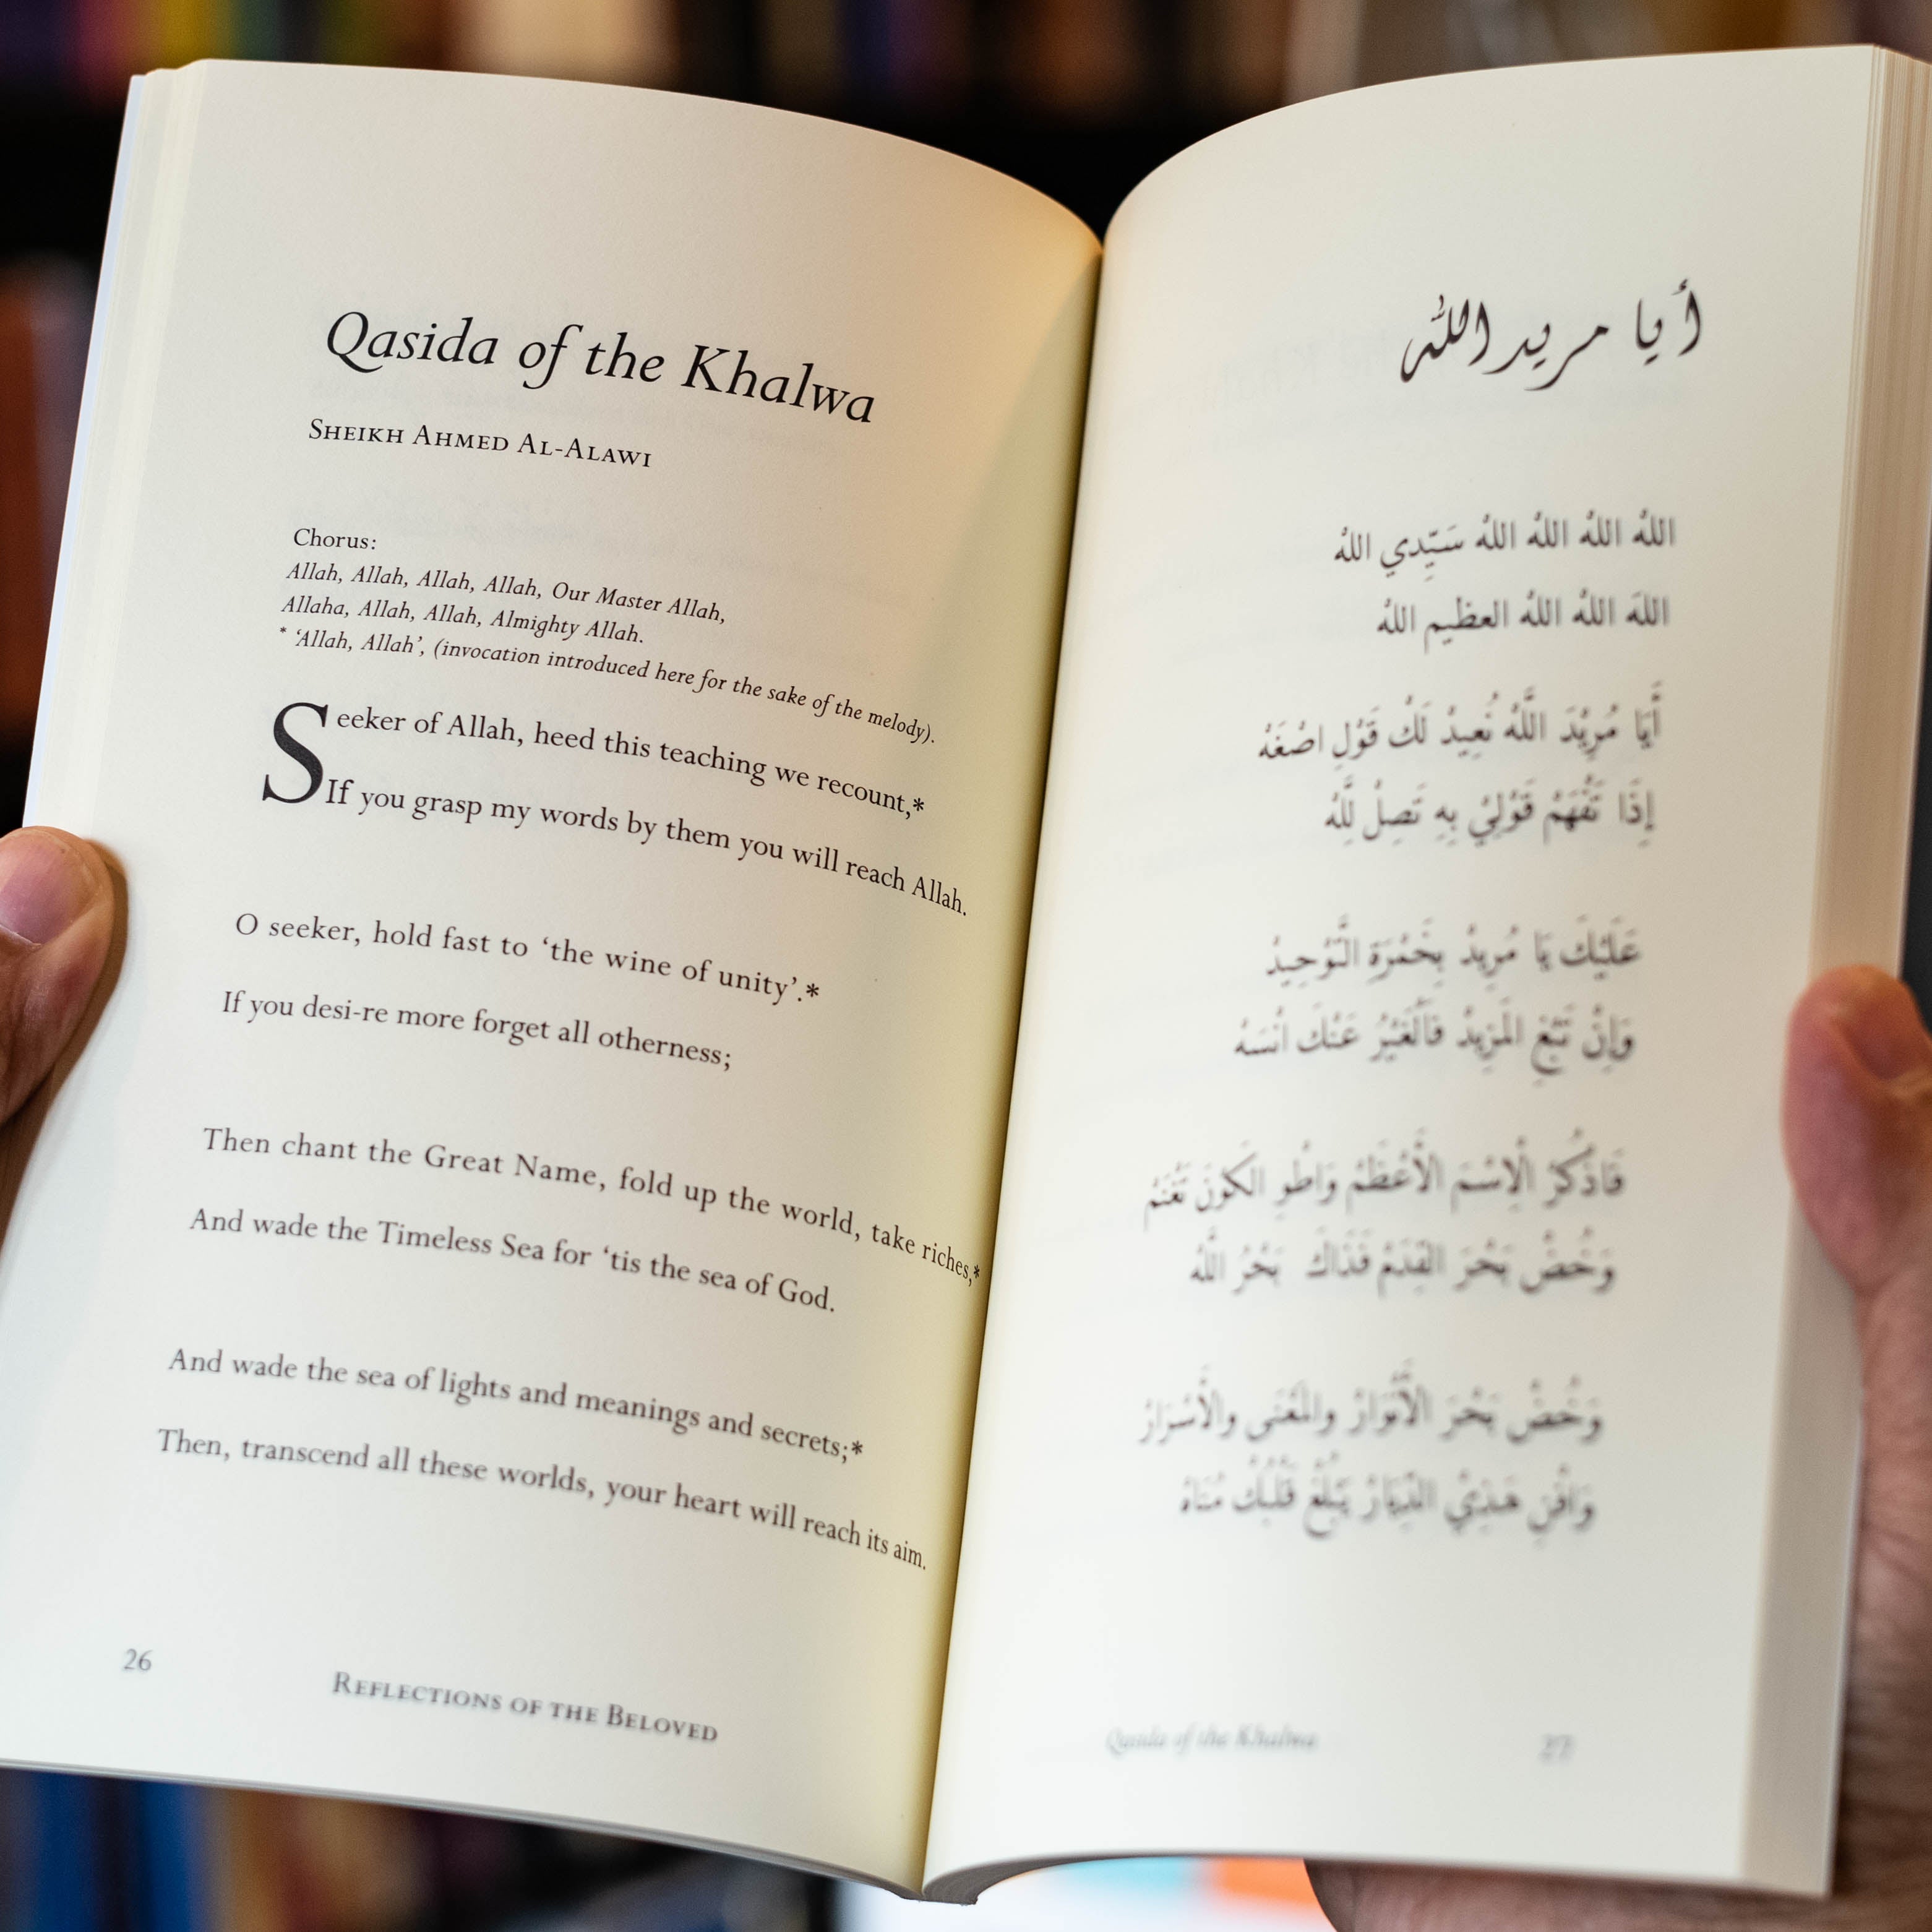 Qasida of the Khalwa
Sheikh Ahmed Al-Alawi
Chorus:
Allah, Allah, Allah, Allah, Our Master Allah,
Allaha, Allah, Allah, Almighty Allah.
* ‘Allah, Allah’, (invocation introduced here for the sake of the melody).
Seeker of Allah, heed this teaching we recount,*
If you grasp my words by them you will reach Allah.
O seeker, hold fast to ‘the wine of unity’.*
If you desi-re more forget all otherness;
Then chant the Great Name, fold up the world, take riches,*
And wade the Timeless Sea for ‘tis the sea of God.
And wade the sea of lights and meanings and secrets;*
Then, transcend all these worlds, your heart will reach its aim.
26
Reflections of the Beloved
أيا مريد الله
اللهُ اللهُ اللهُ اللهُ سَيِّدِي اللهُ
اللهَ اللهُ اللهُ العظيم اللهُ
أَيَا مُرِيْدَ اللَّهْ نُعِيدْ لَكْ قَوْلِ اصْغَهْ
إِذَا تَفْهَمْ قَوْلِيْ بِهِ تَصِلْ لِلَّهْ
عَلَيْكَ يَا مُرِيدْ بِخَمْرَةِ التَّوْحِيدْ
وَإِنْ تَبْغِ الْمَزِيدْ فَالْغَيْرُ عَنْكَ انْسَهْ
فَاذْكُرْ الْاِسْمَ الْأَعْظَمْ وَاطْوِ الكَوْنَ تَغْنَمْ
وَخُضْ بَحْرَ القِدَمْ فَذَاكَ بَحْرُ اللَّهْ
وَخُضْ بَحْرَ الْأَنْوَارْ والمَعْنَى والْأَسْرَارْ
وَافْنِ هَذِيْ الدِّيَارْ يَبْلُغْ قَلْبُكْ مُنَاهْ
Qasida of the Khalwa
27